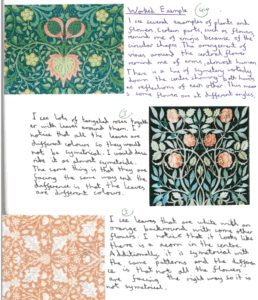 Worked Example
I see several examples of plants and
flowers. Certain parts, such as flowers,
remind me of
because of the
circular shape. The arrangement of
vines around the central flower
remind me of arms, almost human.
There is a line of symmetry vertically
down the centre showing both halves
as reflections of each other. This means
some flowers are at different angles.
I see lots of tangled roses together
with leaves around them. I
notice that all the leaves are
different colours so they would
not be symetrical. I would describe
it as almost symetrical.
The same thing is that they are
facing the same ways and the
difference is that the leaves
are different colours.
I see leaves that are white with an
orange background with some other
flowers. I notice that it looks like
there is a acorn in the centre.
Additionally it is symetrical with
the same patterns and the difference
is that not all the flowers
are facing the right way so it is
not symetrical.